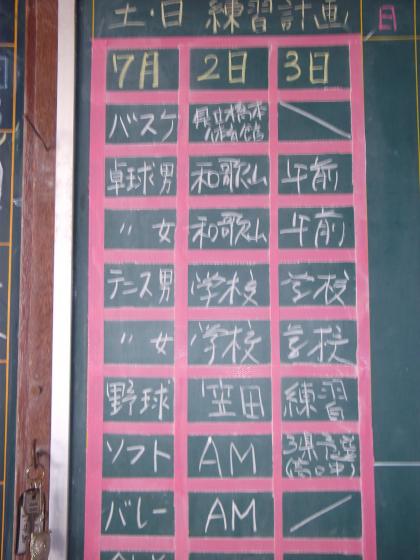 土・日 練習計画
日
7月 2日 3日
バスケ 県立橋本体育館 ＼
卓球男 和歌山 午前
〃 女 和歌山 午前
テニス男 学校 学校
〃 女 学校 学校
野球 笠田 練習
ソフト AM
バレー AM ／